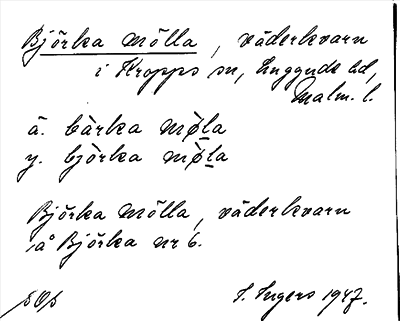 Björka mölla, väderkvarn
i Kropps sn, Luggude hd,
Malm. l.
ä. bàrka mø̀la
y. bjòrka mø̀la
Björka mölla, väderkvarn
på Björka nr 6.
I. Ingers 1947.